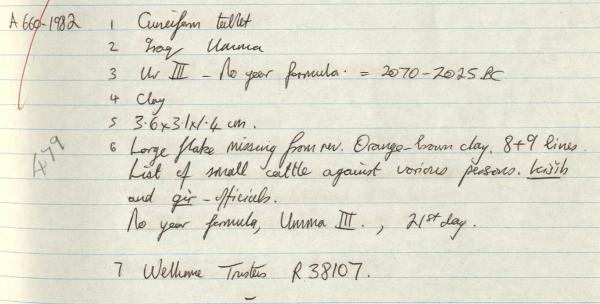 A 660-1982
1 Cuneiform tablet
2 Iraq Umma
3 Ur III - No year formula. = 2070-2025 BC
4 Clay
5 3.6x3.1x1.4 cm.
6 Large flake missing from rev. Orange-brown clay. 8+9 lines.
List of small cattle against various persons. kišib
and gìr-officials.
No year formula, Umma III., 21st day.
479
7 Wellcome Trustees R 38107.